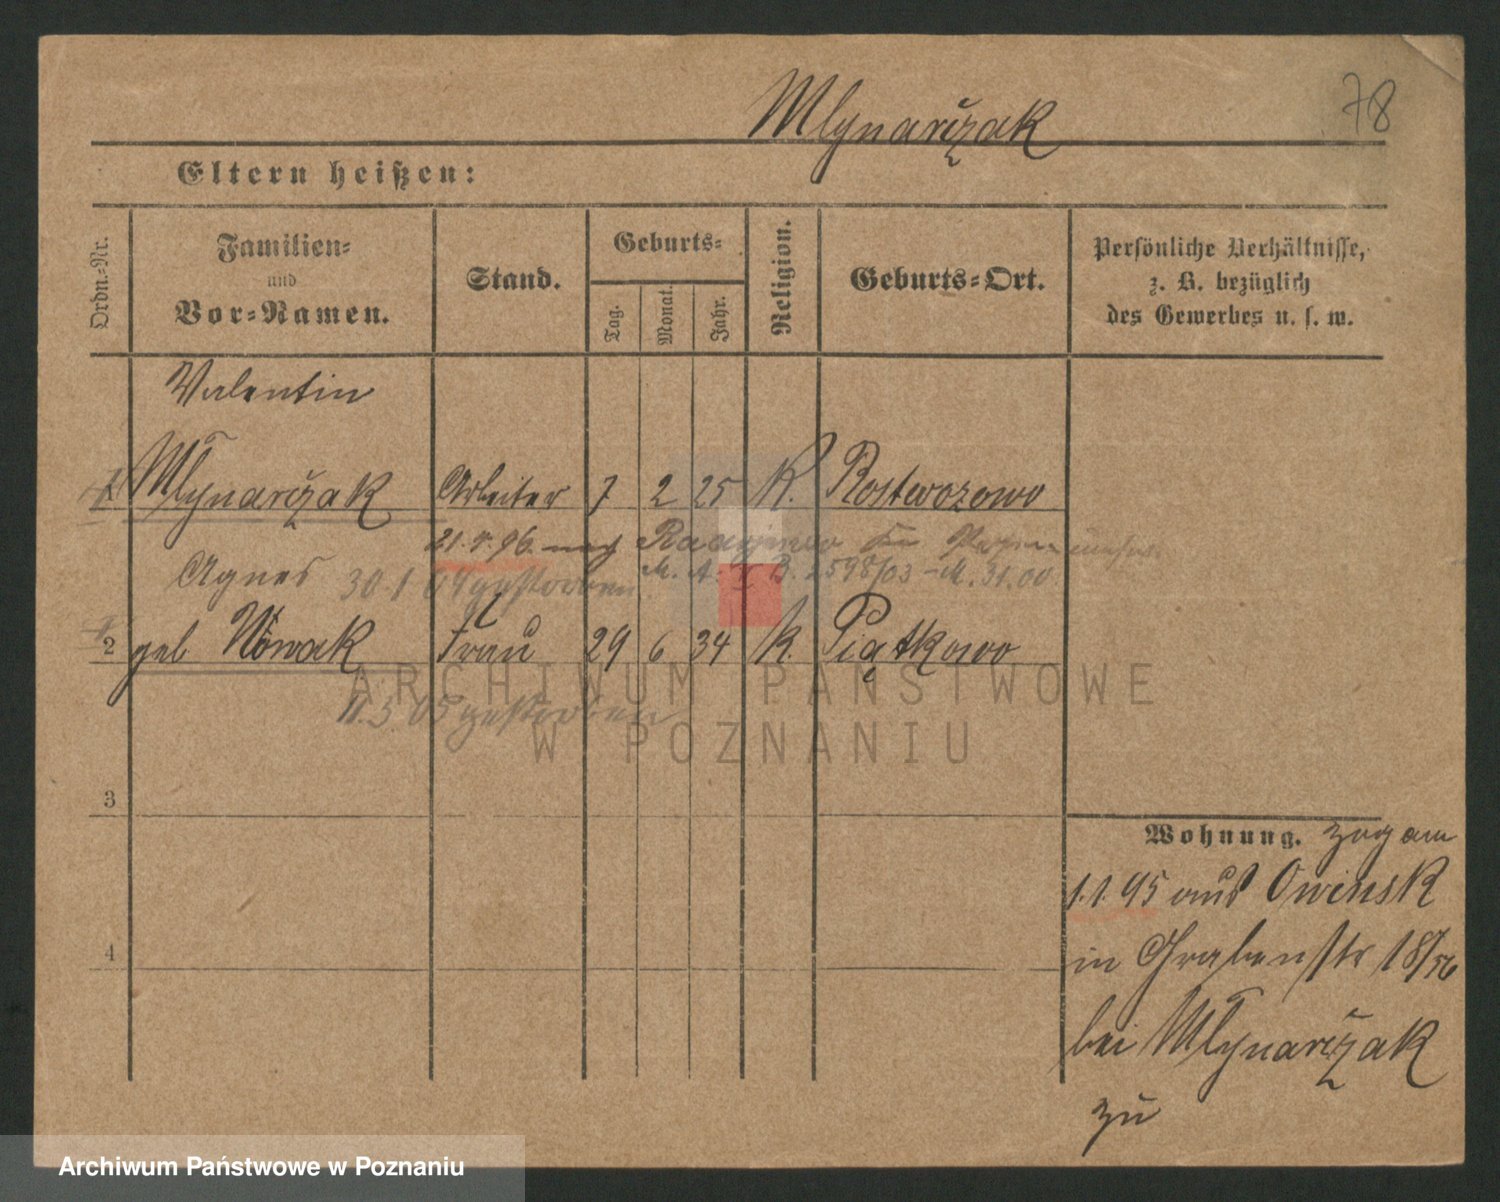 Mlynarczak
78
Eltern heißen:
Ordn.-Nr.
Familien-
und
Vor-Namen.
Stand.
Geburts-
Tag.
Monat.
Jahr.
Religion.
Geburts-Ort.
Persönliche Verhältnisse,
z. B. bezüglich
des Gewerbes u. s. w.
Valentin
1 Mlynarczak Arbeiter 7 2 25 K. Rostworowo
21. 5. 96. nach
Agnes 30.1 04 gestorben M. A. B. 2598/03 - M. 31.00
2 geb Nowak Frau 29 6 34 K. Piątkowo
11.5 05 gestorben
3
4
Wohnung. zog am
1.1.95 aus Owinsk
in Grabenstr 18/
bei Mlynarczak
zu
ARCHIWUM PAŃSTWOWE
W POZNANIU
Archiwum Państwowe w Poznaniu